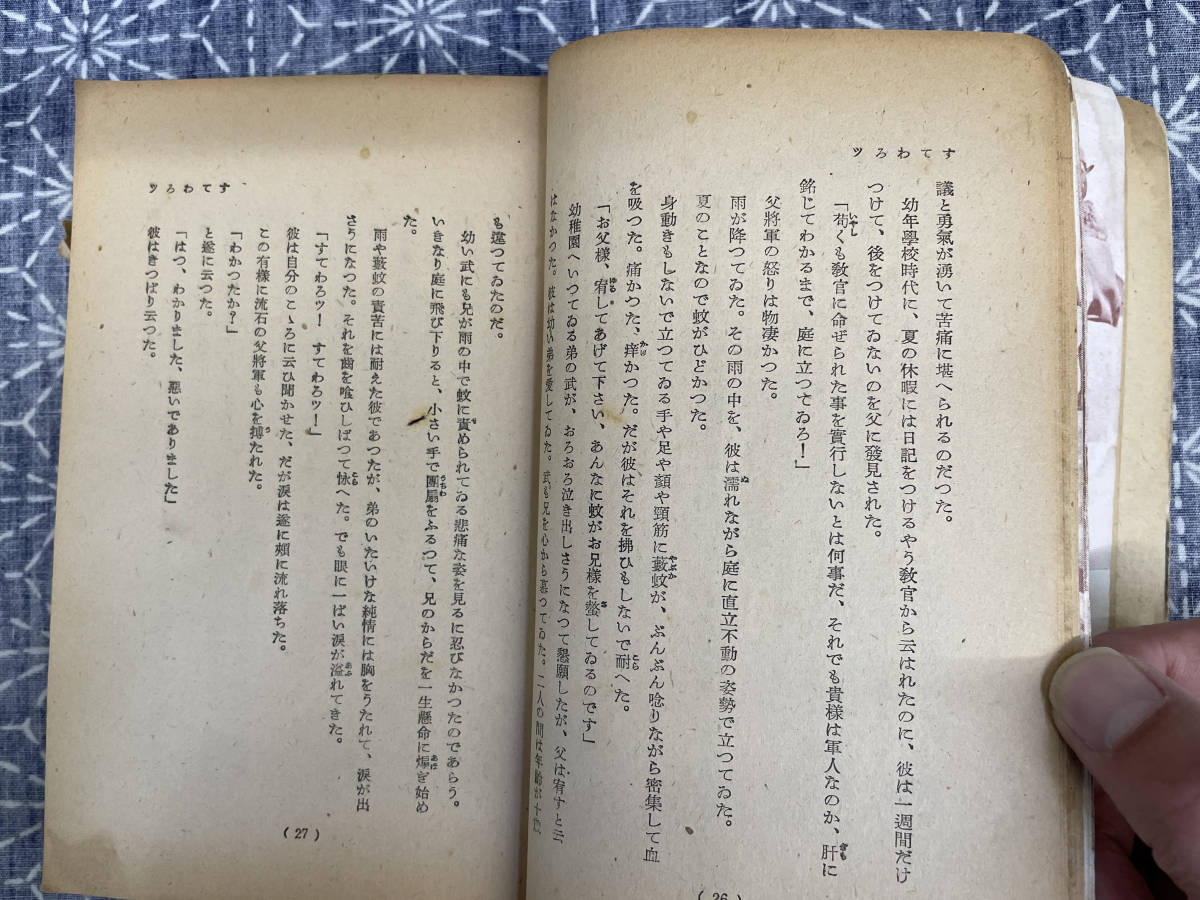 すてわろッ
議と勇氣が湧いて苦痛に堪へられるのだつた。
幼年學校時代に、夏の休暇には日記をつけるやう教官から云はれたのに、彼は一週間だけ
つけて、後をつけてゐないのを父に發見された。
「苟くも教官に命ぜられた事を實行しないとは何事だ、それでも貴樣は軍人なのか、肝に
銘じてわかるまで、庭に立つてゐろ！」
父將軍の怒りは物凄かつた。
雨が降つてゐた。その雨の中を、彼は濡れながら庭に直立不動の姿勢で立つてゐた。
夏のことなので蚊がひどかつた。
身動きもしないで立つてゐる手や足や顏や頸筋に藪蚊が、ぶんぶん唸りながら密集して血
を吸つた。痛かつた、痒かつた。だが彼はそれを拂ひもしないで耐へた。
「お父樣、宥してあげて下さい、あんなに蚊がお兄樣を螫してゐるのです」
幼稚園へいつてゐる弟の武が、おろおろ泣き出しさうになつて懇願したが、父は宥すと云
はなかつた。彼は幼い弟を愛してゐた。武も兄を心から慕つてゐた。二人の間は年齡が十
(26
すてわろッ
も違つてゐたのだ。
幼い武にも兄が雨の中で蚊に責められてゐる悲痛な姿を見るに忍びなかつたのであらう。
いきなり庭に飛び下りると、小さい手で團扇をふるつて、兄のからだを一生懸命に煽ぎ始め
た。
雨や藪蚊の責苦には耐えた彼であつたが、弟のいたいけな純情には胸をうたれて、涙が出
さうになつた。それを齒を喰ひしばつて怺へた。でも眼に一ぱい涙が溢れてきた。
「すてわろッ！　すてわろッ！」
彼は自分のこゝろに云ひ聞かせた、だが涙は遂に頰に流れ落ちた。
この有樣に流石の父將軍も心を搏たれた。
「わかつたか？」
と遂に云つた。
「はつ、わかりました、惡いでありました」
彼はきつぱり云つた。
(27)